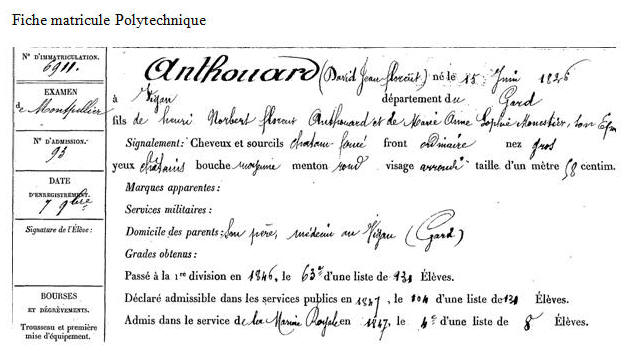 Fiche matricule Polytechnique
N° D'IMMATRICULATION.
6911.
EXAMEN
de Montpellier
N° D'ADMISSION.
93
DATE
D'ENREGISTREMENT.
7 9bre
Signature de l'Élève :
BOURSES
ET DÉGRÈVEMENTS.
Trousseau et première
mise d'équipement.
Anthouard (David Jean florent) né le 15 Juin 1826
à Vigan département du Gard
fils de henri Norbert florent Anthouard et de Marie Anne Sophie Monestier, son Epse
Signalement : Cheveux et sourcils chatain foncé front ordinaire nez gros
yeux chatains bouche moyenne menton rond visage arrondi taille d'un mètre 68 centim.
Marques apparentes :
Services militaires :
Domicile des parents : Son père, médecin au Vigan (Gard)
Grades obtenus :
Passé à la 1re division en 1846, le 63e d'une liste de 131 Élèves.
Déclaré admissible dans les services publics en 1847, le 104 d'une liste de 131 Élèves.
Admis dans le service de la Marine Royale en 1847, le 4e d'une liste de 8 Élèves.